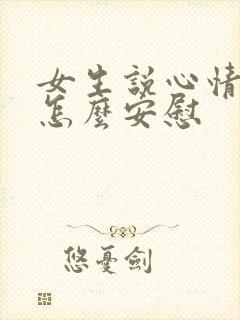 女生說心情
怎麼安慰
悠憂劍